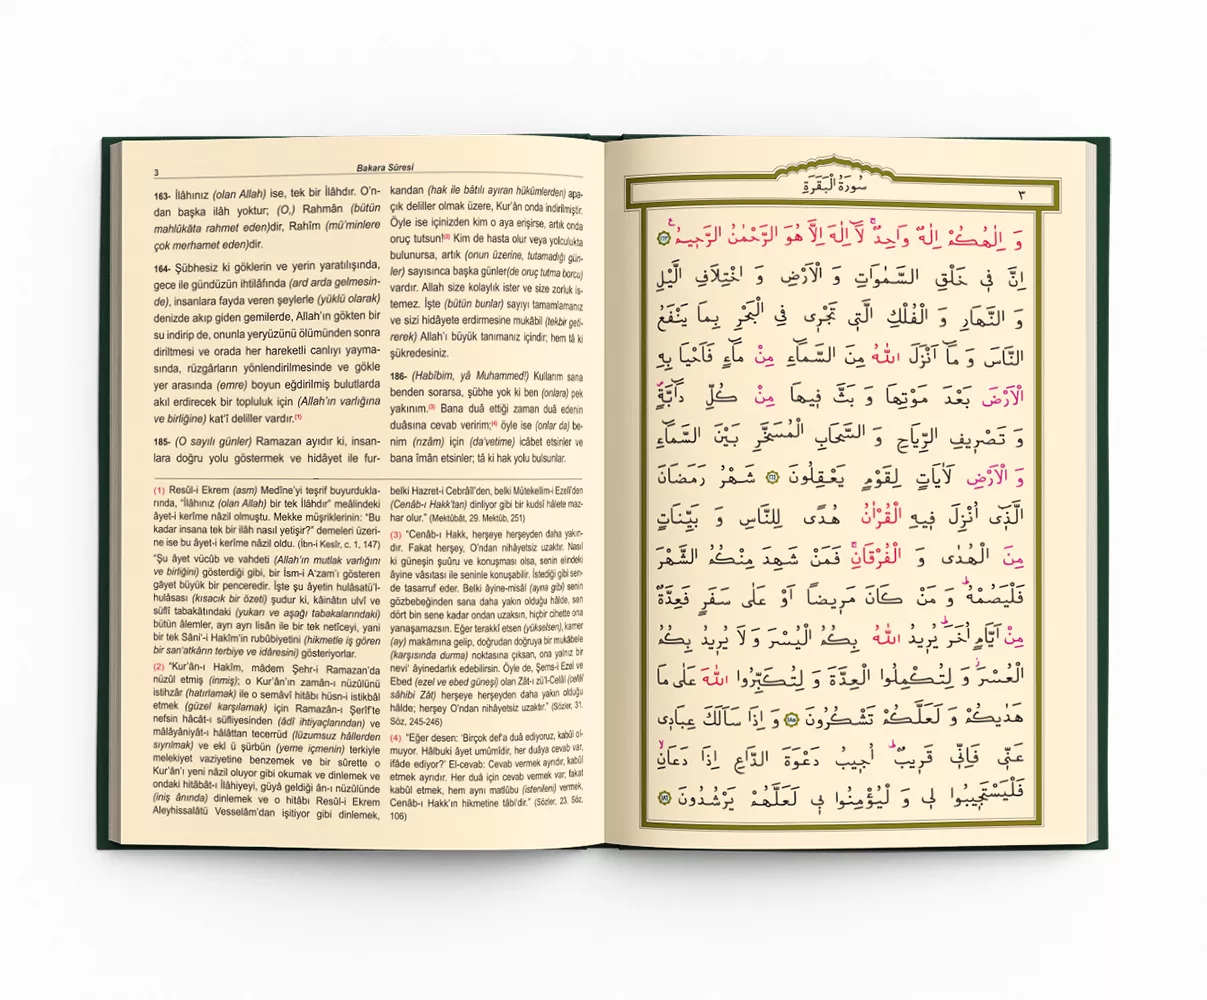 3
Bakara Sûresi
163- İlâhınız (olan Allah) ise, tek bir İlâhdır. O'n-
dan başka ilâh yoktur; (O,) Rahmân (bütün
mahlûkâta rahmet eden)dir, Rahîm (mü'minlere
çok merhamet eden)dir.
164- Şübhesiz ki göklerin ve yerin yaratılışında,
gece ile gündüzün ihtilâfında (ard arda gelmesin-
de), insanlara fayda veren şeylerle (yüklü olarak)
denizde akıp giden gemilerde, Allah'ın gökten bir
su indirip de, onunla yeryüzünü ölümünden sonra
diriltmesi ve orada her hareketli canlıyı yayma-
sında, rüzgârların yönlendirilmesinde ve gökle
yer arasında (emre) boyun eğdirilmiş bulutlarda
akıl erdirecek bir topluluk için (Allah'ın varlığına
ve birliğine) kat'î deliller vardır.(1)
185- (O sayılı günler) Ramazan ayıdır ki, insan-
lara doğru yolu göstermek ve hidâyet ile fur-
kandan (hak ile bâtılı ayıran hükümlerden) apa-
çık deliller olmak üzere, Kur'ân onda indirilmiştir.
Öyle ise içinizden kim o aya erişirse, artık onda
oruç tutsun!(2) Kim de hasta olur veya yolculukta
bulunursa, artık (onun üzerine, tutamadığı gün-
ler) sayısınca başka günler(de oruç tutma borcu)
vardır. Allah size kolaylık ister ve size zorluk is-
temez. İşte (bütün bunlar) sayıyı tamamlamanız
ve sizi hidâyete erdirmesine mukābil (tekbir geti-
rerek) Allah'ı büyük tanımanız içindir; hem tâ ki
şükredesiniz.
186- (Habîbim, yâ Muhammed!) Kullarım sana
benden sorarsa, şübhe yok ki ben (onlara) pek
yakınım.(3) Bana duâ ettiği zaman duâ edenin
duâsına cevab veririm;(4) öyle ise (onlar da) be-
nim (rızâm) için (da'vetime) icâbet etsinler ve
bana îmân etsinler; tâ ki hak yolu bulsunlar.
(1) Resûl-i Ekrem (asm) Medîne'yi teşrif buyurdukla-
rında, "İlâhınız (olan Allah) bir tek İlâhdır" meâlindeki
âyet-i kerîme nâzil olmuştu. Mekke müşriklerinin: "Bu
kadar insana tek bir ilâh nasıl yetişir?" demeleri üzeri-
ne ise bu âyet-i kerîme nâzil oldu. (İbn-i Kesîr, c. 1, 147)
"Şu âyet vücûb ve vahdeti (Allah'ın mutlak varlığını
ve birliğini) gösterdiği gibi, bir İsm-i A'zam'ı gösteren
gâyet büyük bir penceredir. İşte şu âyetin hulâsatü'l-
hulâsası (kısacık bir özeti) şudur ki, kâinâtın ulvî ve
süflî tabakâtındaki (yukarı ve aşağı tabakalarındaki)
bütün âlemler, ayrı ayrı lisân ile bir tek netîceyi, yani
bir tek Sâni'-i Hakîm'in rubûbiyetini (hikmetle iş gören
bir san'atkârın terbiye ve idâresini) gösteriyorlar.
(2) "Kur'ân-ı Hakîm, mâdem Şehr-i Ramazan'da
nüzûl etmiş (inmiş); o Kur'ân'ın zamân-ı nüzûlünü
istihzâr (hatırlamak) ile o semâvî hitâbı hüsn-i istikbâl
etmek (güzel karşılamak) için Ramazân-ı Şerîf'te
nefsin hâcât-ı süfliyesinden (âdî ihtiyaçlarından) ve
mâlâyâniyât-ı hâlâttan tecerrüd (lüzumsuz hâllerden
sıyrılmak) ve ekl ü şürbün (yeme içmenin) terkiyle
melekiyet vaziyetine benzemek ve bir sûrette o
Kur'ân'ı yeni nâzil oluyor gibi okumak ve dinlemek ve
ondaki hitâbât-ı İlâhiyeyi, güyâ geldiği ân-ı nüzûlünde
(iniş ânında) dinlemek ve o hitâbı Resûl-i Ekrem
Aleyhissalâtü Vesselâm'dan işitiyor gibi dinlemek,
belki Hazret-i Cebrâîl'den, belki Mütekellim-i Ezelî'den
(Cenâb-ı Hakk'tan) dinliyor gibi bir kudsî hâlete maz-
har olur." (Mektûbât, 29. Mektûb, 251)
(3) "Cenâb-ı Hakk, herşeye herşeyden daha yakın-
dır. Fakat herşey, O'ndan nihâyetsiz uzaktır. Nasıl
ki güneşin şuûru ve konuşması olsa, senin elindeki
âyine vâsıtası ile seninle konuşabilir. İstediği gibi sen-
de tasarruf eder. Belki âyine-misâl (ayna gibi) senin
gözbebeğinden sana daha yakın olduğu hâlde, sen
dört bin sene kadar ondan uzaksın, hiçbir cihette ona
yanaşamazsın. Eğer terakkî etsen (yükselsen), kamer
(ay) makāmına gelip, doğrudan doğruya bir mukābele
(karşısında durma) noktasına çıksan, ona yalnız bir
nevi' âyinedarlık edebilirsin. Öyle de, Şems-i Ezel ve
Ebed (ezel ve ebed güneşi) olan Zât-ı zü'l-Celâl (celâl
sâhibi Zât) herşeye herşeyden daha yakın olduğu
hâlde; herşey O'ndan nihâyetsiz uzaktır." (Sözler, 31.
Söz, 245-246)
(4) "Eğer desen: 'Birçok def'a duâ ediyoruz, kabûl ol-
muyor. Hâlbuki âyet umûmîdir, her duâya cevab var,
ifâde ediyor?' El-cevab: Cevab vermek ayrıdır, kabûl
etmek ayrıdır. Her duâ için cevab vermek var; fakat
kabûl etmek, hem aynı matlûbu (istenileni) vermek,
Cenâb-ı Hakk'ın hikmetine tâbi'dir." (Sözler, 23. Söz,
106)
سُورَةُ الْبَقَرَةِ
٣
وَ اِلٰهُكُمْ اِلٰهٌ وَاحِدٌۚ لَٓا اِلٰهَ اِلَّا هُوَ الرَّحْمٰنُ الرَّح۪يمُ۟ ﴿١٦٣﴾
اِنَّ ف۪ي خَلْقِ السَّمٰوَاتِ وَ الْاَرْضِ وَ اخْتِلَافِ الَّيْلِ
وَ النَّهَارِ وَ الْفُلْكِ الَّت۪ي تَجْر۪ي فِي الْبَحْرِ بِمَا يَنْفَعُ
النَّاسَ وَ مَٓا اَنْزَلَ اللّٰهُ مِنَ السَّمَٓاءِ مِنْ مَٓاءٍ فَاَحْيَا بِهِ
الْاَرْضَ بَعْدَ مَوْتِهَا وَ بَثَّ ف۪يهَا مِنْ كُلِّ دَٓابَّةٍۖ
وَ تَصْر۪يفِ الرِّيَاحِ وَ السَّحَابِ الْمُسَخَّرِ بَيْنَ السَّمَٓاءِ
وَ الْاَرْضِ لَاٰيَاتٍ لِقَوْمٍ يَعْقِلُونَ ﴿١٦٤﴾ شَهْرُ رَمَضَانَ
الَّذ۪ٓي اُنْزِلَ ف۪يهِ الْقُرْاٰنُ هُدًى لِلنَّاسِ وَ بَيِّنَاتٍ
مِنَ الْهُدٰى وَ الْفُرْقَانِۚ فَمَنْ شَهِدَ مِنْكُمُ الشَّهْرَ
فَلْيَصُمْهُۜ وَ مَنْ كَانَ مَر۪يضاً اَوْ عَلٰى سَفَرٍ فَعِدَّةٌ
مِنْ اَيَّامٍ اُخَرَۜ يُر۪يدُ اللّٰهُ بِكُمُ الْيُسْرَ وَ لَا يُر۪يدُ بِكُمُ
الْعُسْرَۘ وَ لِتُكْمِلُوا الْعِدَّةَ وَ لِتُكَبِّرُوا اللّٰهَ عَلٰى مَا
هَدٰيكُمْ وَ لَعَلَّكُمْ تَشْكُرُونَ ﴿١٨٥﴾ وَ اِذَا سَاَلَكَ عِبَاد۪ي
عَنّ۪ي فَاِنّ۪ي قَر۪يبٌۜ اُج۪يبُ دَعْوَةَ الدَّاعِ اِذَا دَعَانِۙ
فَلْيَسْتَج۪يبُوا ل۪ي وَ لْيُؤْمِنُوا ب۪ي لَعَلَّهُمْ يَرْشُدُونَ ﴿١٨٦﴾